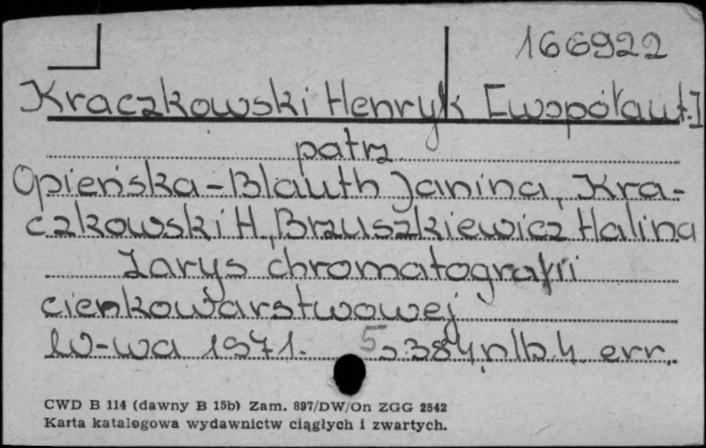 166922
Kraczkowski Henryk [współaut.]
patrz
Opieńska-Blauth Janina, Kra-
czkowski H., Brzuszkiewicz Halina
Zarys chromatografii
cienkowarstwowej
W-wa 1971. s. 384, nlb. 4. err.
CWD B 114 (dawny B 15b) Zam. 897/DW/On ZGG 2542
Karta katalogowa wydawnictw ciągłych i zwartych.